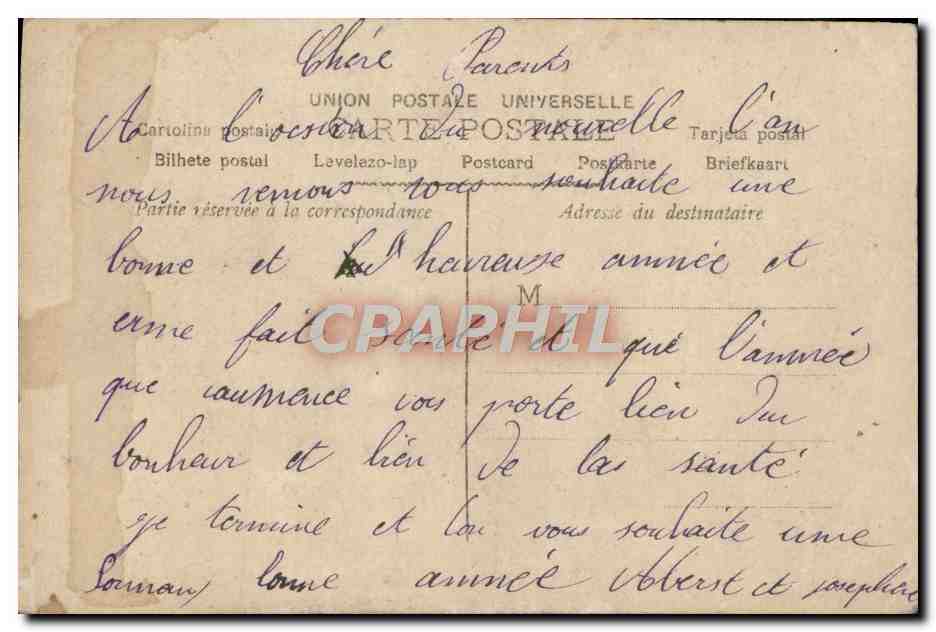 Chère Parents
UNION POSTALE UNIVERSELLE
A l'occsion du nouvelle l'an
Cartolina postale CARTE POSTALE Tarjeta postal
Bilhete postal Levelezo-lap Postcard Postkarte Briefkaart
nous venious vous souhaite une
Partie réservée à la correspondance Adresse du destinataire
bonne et heureuse année et
M
CPAPHIL
erme fait santé et que l'année
que coumence vous porte bien du
bonheur et bien de las santé
je termine et vous souhaite une
bonne année Albert et josephine